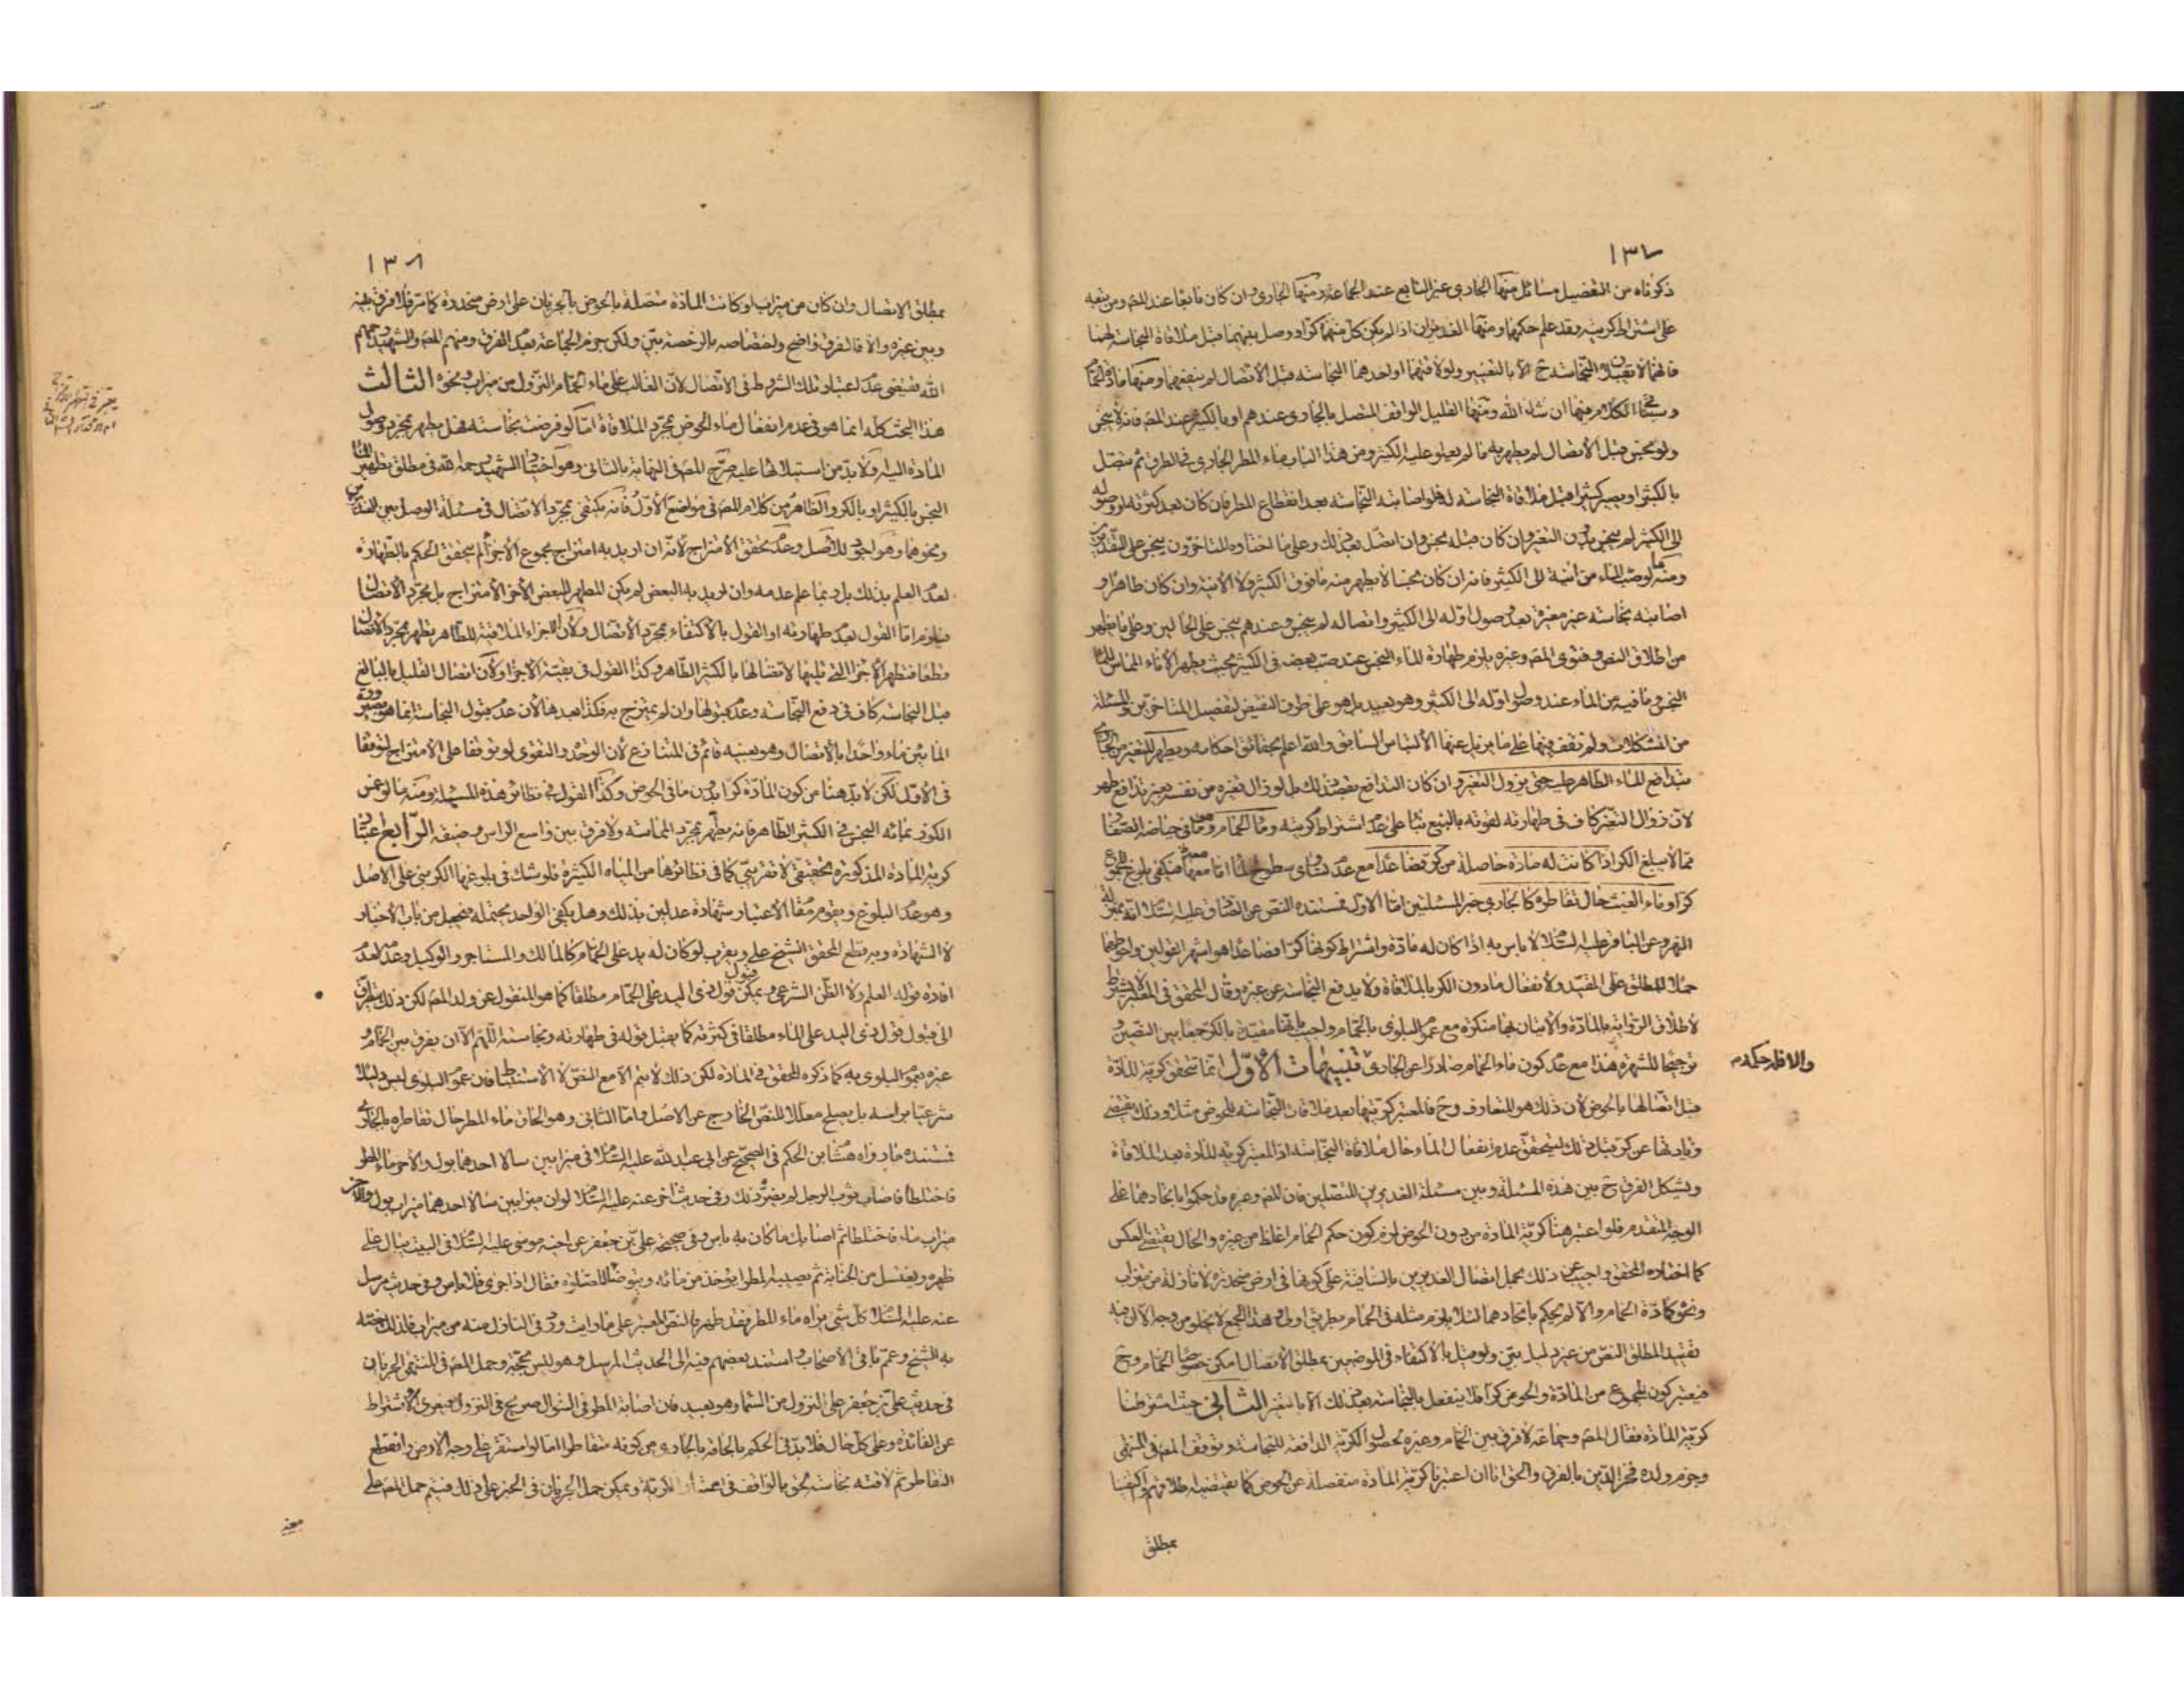 ١٣٧
ذكرناه من التفصيل مسائل منها الجاري غير النابع عند الجماعة ومنها الجاري وان كان نابعا عند المص ومن تبعه
على اشتراط كريته وقد علم حكمها ومنها الغديران اذا لم يكن كل منهما كرا ووصل بينهما قبل ملاقاة النجاسة لهما
فانهما لا يقبلان النجاسة ح الا بالتغيير ولو لاقتهما او احدهما النجاسة قبل الاتصال لم ينفعهما ومنها مادة الحمام
وسيجئ الكلام فيها ان شاء الله ومنها القليل الواقف المتصل بالجاري عندهم او بالكثير عند المص فانه لا ينجس
ولو نجس قبل الاتصال لم يطهر به ما لم يعلو عليه الكثير ومن هذا الباب ماء المطر الجاري في الطرق ثم يتصل
بالكثير او يصير كثيرا قبل ملاقاة النجاسة له فلو اصابته النجاسة بعد انقطاع المطر فان كان بعد كثرته او وصوله
الى الكثير لم ينجس بدون التغير وان كان قبله نجس وان اتصل بعد ذلك وعلى ما اختاره المتاخرون ينجس على التقديرين
ومنه ما لو صب الماء من انية الى الكثير فانه ان كان نجسا لا يطهر منه ما فوق الكثير ولا الانية وان كان طاهرا و
اصابته نجاسة غير مغيرة بعد وصول اوله الى الكثير واتصاله لم ينجس وعندهم ينجس على الحالين وعلى ما يظهر
من اطلاق النص وفتوى المص وغيره يلزم طهارة الماء النجس عند صب بعضه في الكثير بحيث يطهر الاناء المماس للماء
النجس وما فيه من الماء عند وصول اوله الى الكثير وهو بعيد بل هو على طرف النقيض لتفصيل المتاخرين والمسئلة
من المشكلات ولم نقف فيها على ما يزيل عنها الالتباس السابق والله اعلم بحقائق احكامه ويطهر المتغير من الجاري
بتدافع الماء الطاهر عليه حتى يزول التغير وان كان التدافع بعد ذلك بل لو زال تغيره من نفسه بغير تدافع طهر
لان زوال التغير كاف في طهارته لقوته بالنبع بناء على عدم اشتراط كريته وماء الحمام وهو ما في حياضه الصغار
مما لا يبلغ الكر اذا كانت له مادة حاصلة من كر فصاعدا مع عدم تساوي سطوح الماء اما معه فيكفي بلوغ المجموع
كرا وماء الغيث حال تقاطره كالجاري خبر المسئلتين اما الاول فمستنده النص عن الصادق عليه السلم انه بمنزلة
النهر وعن الباقر عليه السلم لا باس به اذا كان له مادة واشتراط كونها كرا فصاعدا هو اشهر القولين واحوطهما
حملا للمطلق على المقيد ولانفعال ما دون الكر بالملاقاة ولا يدفع النجاسة عن غيره وقال المحقق في المعتبر لا يشترط
لاطلاق الرواية بالمادة والاتيان بها منكرة مع عموم البلوى بالحمام واجيب بانها مقيدة بالكر جمعا بين النصين و
ترجيحا للشهرة هذا مع عدم كون ماء الحمام صادرا عن الجاري والا فله حكمه تنبيهات الاول انما تتحقق كرية المادة
قبل اتصالها بالحوض لان ذلك هو المتعارف وح فالمعتبر كريتها بعد ملاقات النجاسة للحوض مثلا وذلك يقتضي
زيادتها عن كر قبل ذلك ليتحقق عدم انفعال الماء حال ملاقاة النجاسة اذ المعتبر كرية المادة بعد الملاقاة
ويشكل الفرق ح بين هذه المسئلة وبين مسئلة الغديرين المتصلين فان المص وغيره قد حكموا باتحادهما على
الوجه المتقدم فلو اعتبر هنا كرية المادة من دون الحوض لزم كون حكم الحمام اغلظ من غيره والحال يقتضي العكس
كما اختاره المحقق واجيب عن ذلك بحمل اتصال الغديرين بالساقية على كونها في ارض منحدرة لا نازلة من ميزاب
ونحوه كمادة الحمام والا لم يحكم باتحادهما لئلا يلزم مثله في الحمام بطريق اولى وهذا الجمع لا يخلو من وجه الا ان فيه
تقييد المطلق النص من غير دليل بين ولو قيل بالاكتفاء في الموضعين بمطلق الاتصال امكن خصوصا الحمام وح
فيعتبر كون المجموع من المادة والحوض كرا فلا ينفعل بالنجاسة بعد ذلك الا بالتغير الثاني حيث اشترطنا
كرية المادة فقال المص وجماعة لا فرق بين الحمام وغيره لحصول الكرية الدافعة للنجاسة وتوقف المص في المنتهى
وجزم ولده فخر الدين بالفرق والحق انا ان اعتبرنا كرية المادة منفصلة عن الحوض كما يقتضيه اطلاقهم واكتفينا
بمطلق
والا فله حكمه م
١٣٨
بمطلق الاتصال وان كان من ميزاب او كانت المادة متصلة بالحوض بالجريان على ارض منحدرة كما مر فلا فرق بينه
وبين غيره والا فالفرق واضح واختصاصه بالرخصة بين ولكن جزم الجماعة بعدم الفرق ومنهم المص والشهيد رحمهما
الله يقتضي عدم اعتبار تلك الشروط في الاتصال لان الغالب على ماء الحمام النزول من ميزاب ونحوه الثالث
هذا البحث كله انما هو في عدم انفعال ماء الحوض بمجرد الملاقاة اما لو فرضت نجاسته فهل يطهر بمجرد وصول
المادة اليه ولا بد من استيلائها عليه صرح المص في النهاية بالثاني وهو اختيار الشهيد رحمه الله في مطلق تطهير الماء
النجس بالكثير او بالكر والظاهر من كلام المص في مواضع الاول فانه يكتفي بمجرد الاتصال في مسئلة الوصل بين الغديرين
ونحوهما وهو اجود للاصل وعدم تحقق الامتزاج لانه ان اريد به امتزاج مجموع الاجزاء لم يتحقق الحكم بالطهارة
لعدم العلم بذلك بل ربما علم عدمه وان اريد به البعض لم يكن المطهر للبعض الاخر الامتزاج بل مجرد الاتصال
فيلزم اما القول بعدم طهارته او القول بالاكتفاء بمجرد الاتصال ولان الاجزاء الملاقية للطاهر يطهر بمجرد الاتصال
قطعا فتطهر الاجزاء التي تليها لاتصالها بالكثير الطاهر وكذا القول في بقية الاجزاء ولان اتصال القليل بالبالغ
قبل النجاسة كاف في دفع النجاسة وعدم قبولها وان لم يمتزج به فكذا بعدها لان عدم قبول النجاسة انما هو بصيرورة
المائين ماء واحدا بالاتصال وهو بعينه قائم في المتنازع لان الوحدة والتقوى لو توقفا على الامتزاج لتوقفا
في الاول لكن لا بد هنا من كون المادة كرا بدون ما في الحوض وكذا القول في نظائر هذه المسئلة ومنه ما لو غمس
الكوز بمائه النجس في الكثير الطاهر فانه يطهر بمجرد المماسة ولا فرق بين واسع الراس وضيقه الرابع اعتبار
كرية المادة المذكورة تحقيقي لا تقريبي كما في نظائرها من المياه الكثيرة فلو شك في بلوغها الكر بني على الاصل
وهو عدم البلوغ ويقوم مقام الاعتبار شهادة عدلين بذلك وهل يكفي الواحد يحتمله فيجعل من باب الاخبار
لا الشهادة وبه قطع المحقق الشيخ علي ويقرب لو كان له يد على الحمام كالمالك والمستاجر والوكيل وعدمه لعدم
افادة قوله العلم ولا الظن الشرعي ويمكن قبول قول ذي اليد على الحمام مطلقا كما هو المنقول عن ولد المص لكن ذلك يتطرق
الى قبول قول ذي اليد على الماء مطلقا في كثرته كما يقبل قوله في طهارته ونجاسته اللهم الا ان يفرق بين الحمام و
غيره بعموم البلوى به كما ذكره المحقق في المادة لكن ذلك لا يتم الا مع النص لا الاستنباط فان عموم البلوى ليس دليلا
شرعيا براسه بل يصلح معللا للنص الخارج عن الاصل واما الثاني وهو الحاق ماء المطر حال تقاطره بالجاري
فمستنده ما رواه هشام بن الحكم في الصحيح عن ابي عبد الله عليه السلم في ميزابين سالا احدهما بول والاخر ماء المطر
فاختلطا فاصاب ثوب الرجل لم يضره ذلك وفي حديث اخر عنه عليه السلم لو ان ميزابين سالا احدهما ميزاب بول والاخر
ميزاب ماء فاختلطا ثم اصابك ما كان به باس وفي صحيحة علي بن جعفر عن اخيه موسى عليه السلم في البيت يبال على
ظهره ويغتسل من الجنابة ثم يصيبه المطر ايؤخذ من مائه ويتوضا للصلوة فقال اذا جرى فلا باس وفي حديث مرسل
عنه عليه السلم كل شئ يراه ماء المطر فقد طهر فالنص المعتبر على ما رايت ورد في النازل منه من ميزاب فلذلك خصه
به الشيخ وعم باقي الاصحاب واستند بعضهم فيه الى الحديث المرسل وهو ليس بحجة وحمل المص في المنتهى الجريان
في حديث علي بن جعفر على النزول من السماء وهو بعيد فان اصابة المطر في السؤال صريح في النزول فيعرى الاشتراط
عن الفائدة وعلى كل حال فلا بد في الحكم بالحاقه بالجاري من كونه متقاطرا اما لو استقر على وجه الارض وانقطع
التقاطر ثم لاقته نجاسة لحق بالواقف في اعتبار الكرية ويمكن حمل الجريان في الخبر على ذلك فيتم حمل المص على
معنى